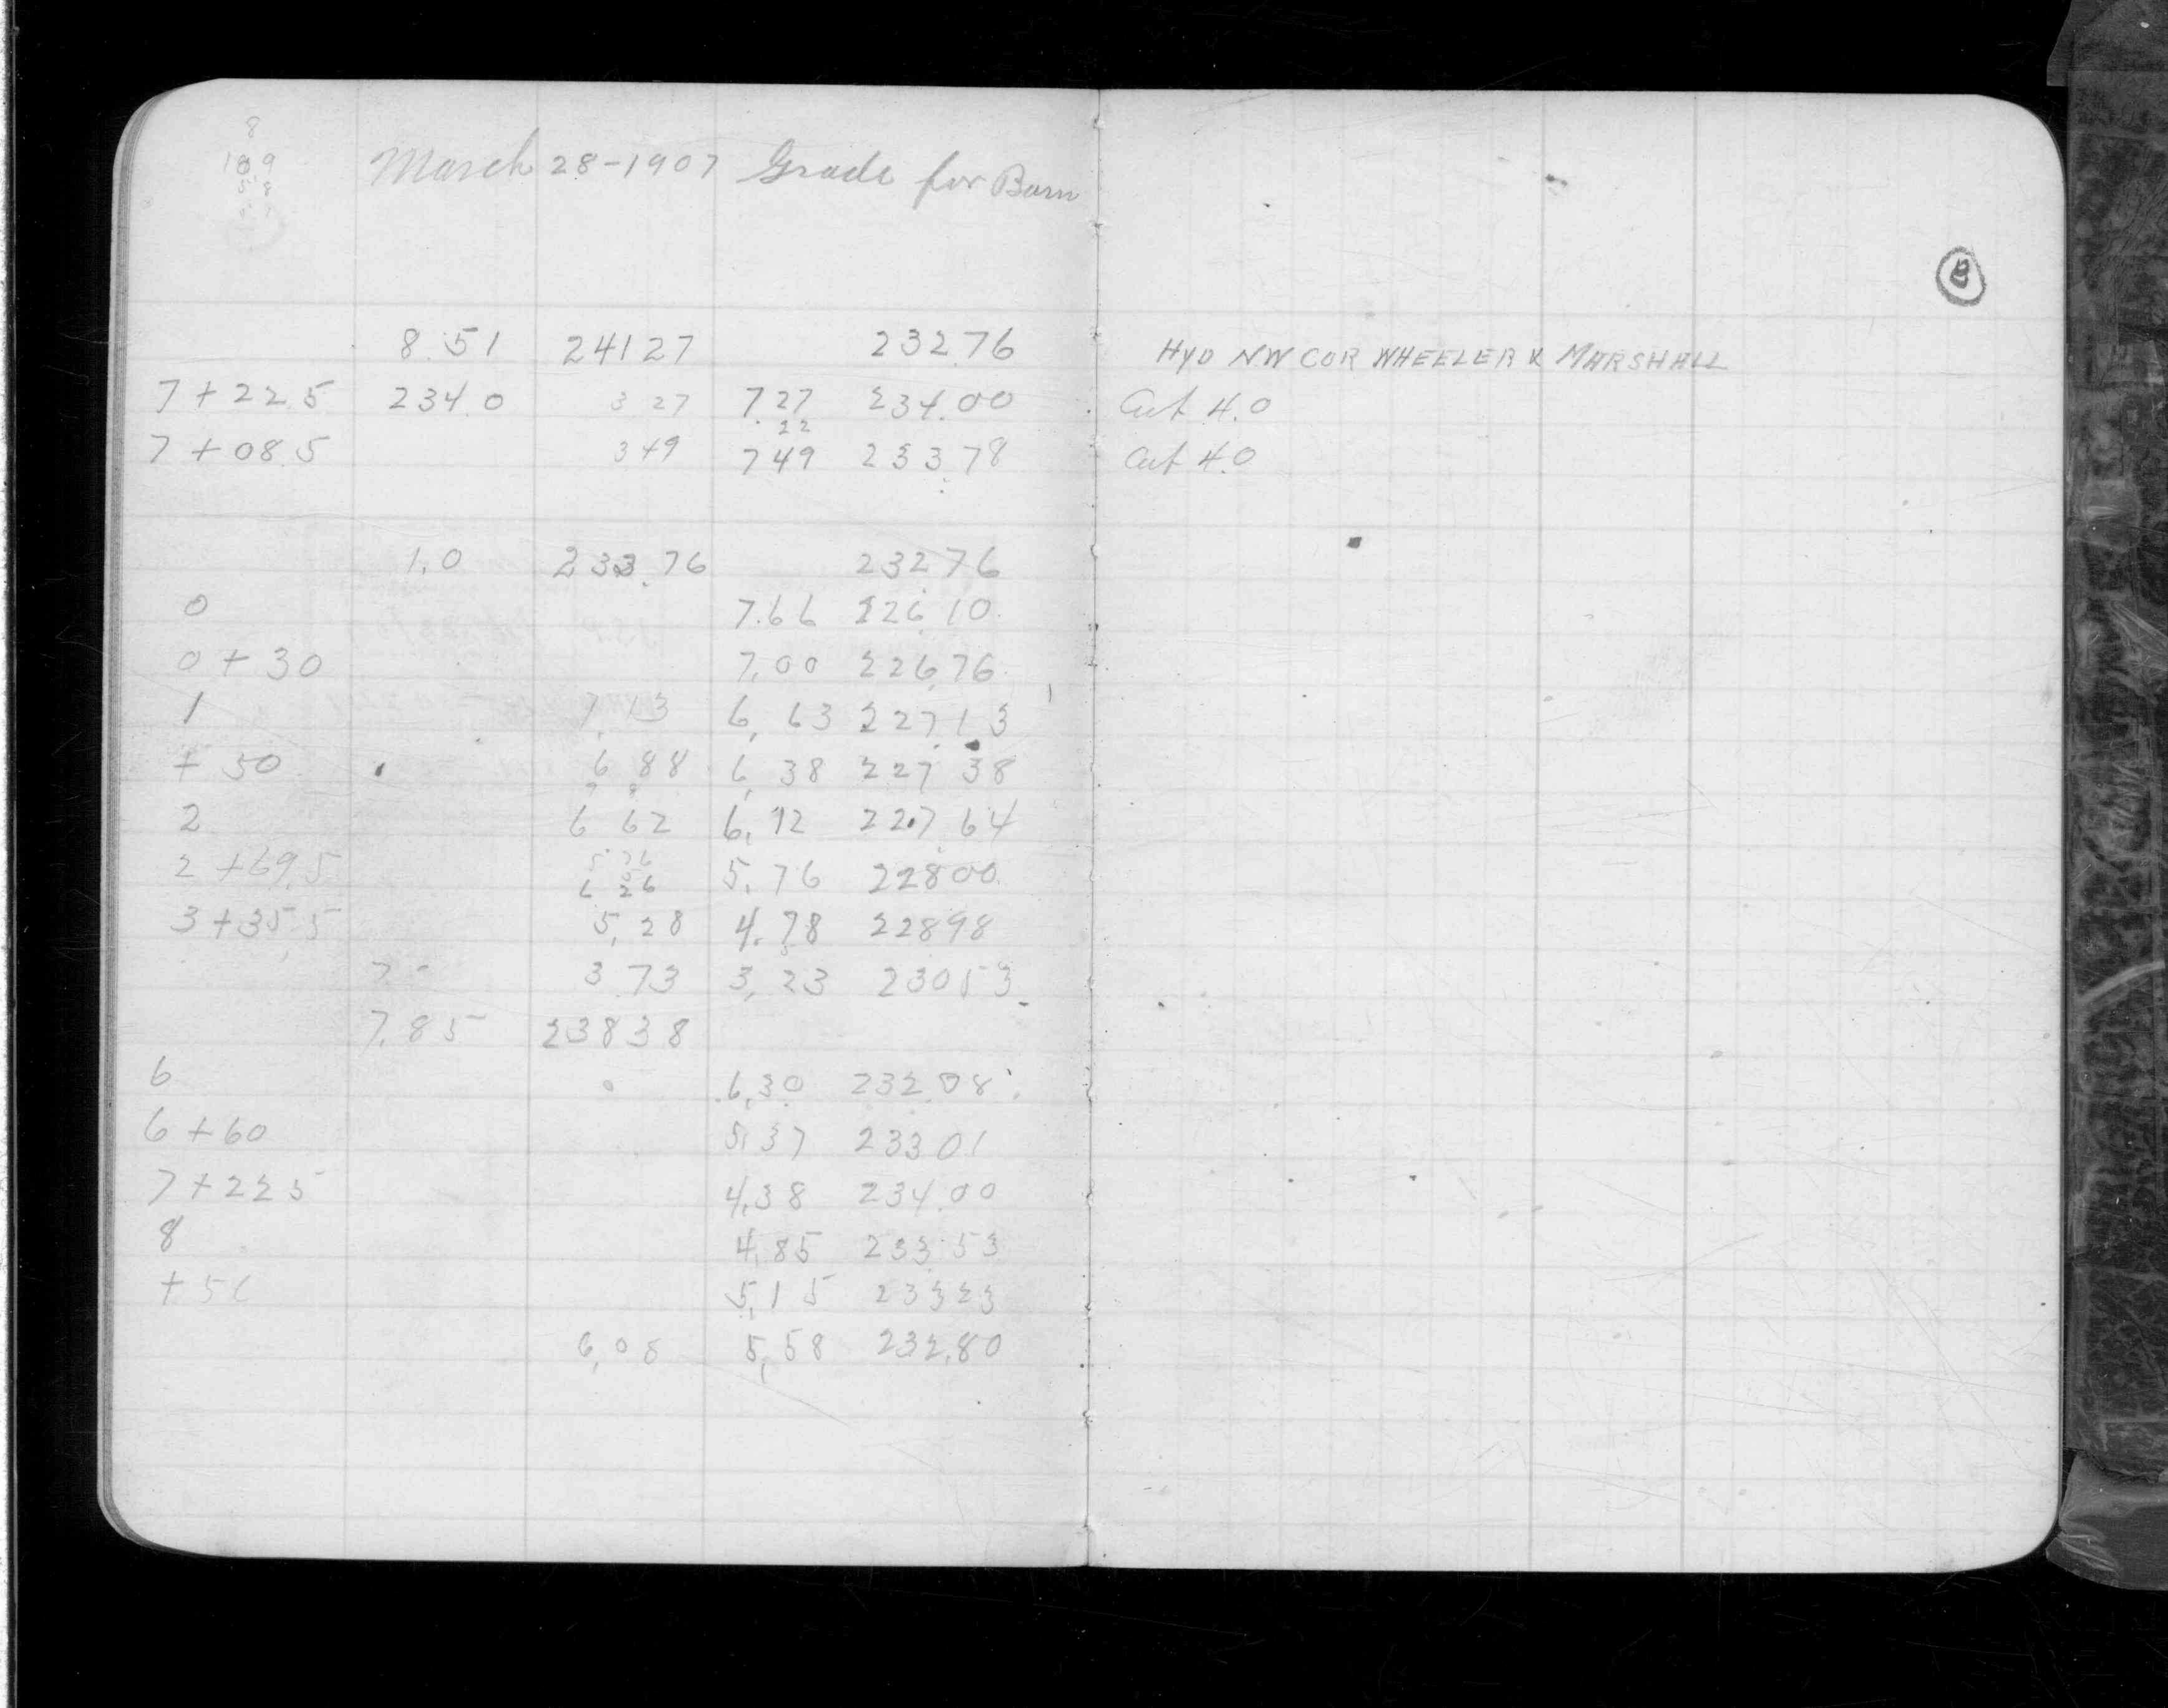 8
109
March 28-1907 Grade for Barn
B
8.51 24127 232.76 HYD NW COR WHEELER & MARSHALL
7+22.5 234.0 3 27 7 27 234.00 Cut 4.0
22
7+08.5 349 749 233 78 Cut 4.0
1.0 233.76 232 76
0 7.66 226.10
0+30 7.00 226.76
1 7.13 6.63 227 13
+50 6 88 6.38 227 38
2 6 62 6.12 227 64
5.76
2+69.5 6 26 5.76 22800
3+35.5 5.28 4.78 22898
3.73 3.23 23053
7.85 23838
6 6.30 232.08
6+60 5.37 23301
7+225 4.38 234.00
8 4.85 233.53
+50 5.15 23323
6.08 5.58 232.80